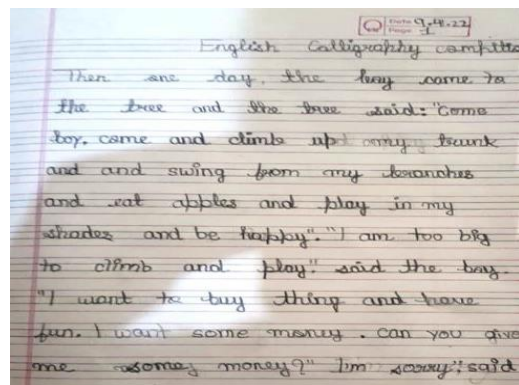 Date 9.4.22
Page 1
English Calligraphy compitto
Then one day, the boy came to
the tree and the tree said: "Come
boy, come and climb up my trunk
and and swing from my branches
and eat apples and play in my
shades and be happy". "I am too big
to climb and play." said the boy.
"I want to buy thing and have
fun. I want some money. Can you give
me some money?" I'm sorry"; said